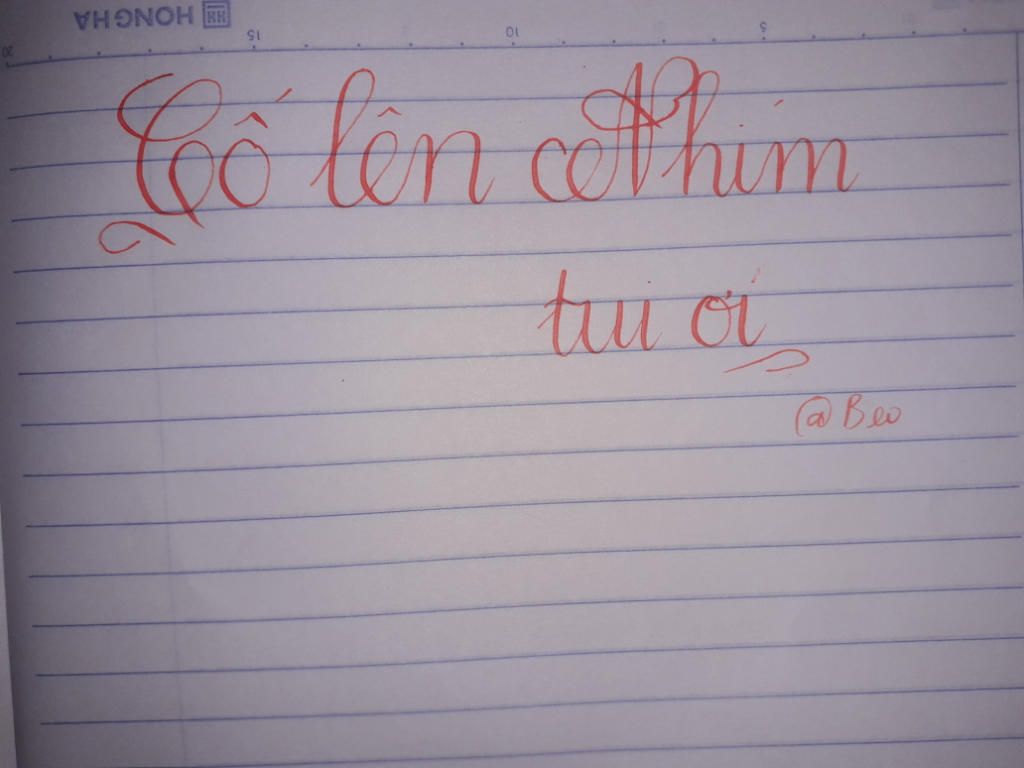 HONG HA
20 15 10 5
Cố lên Nhím
tui ơi
@Beo